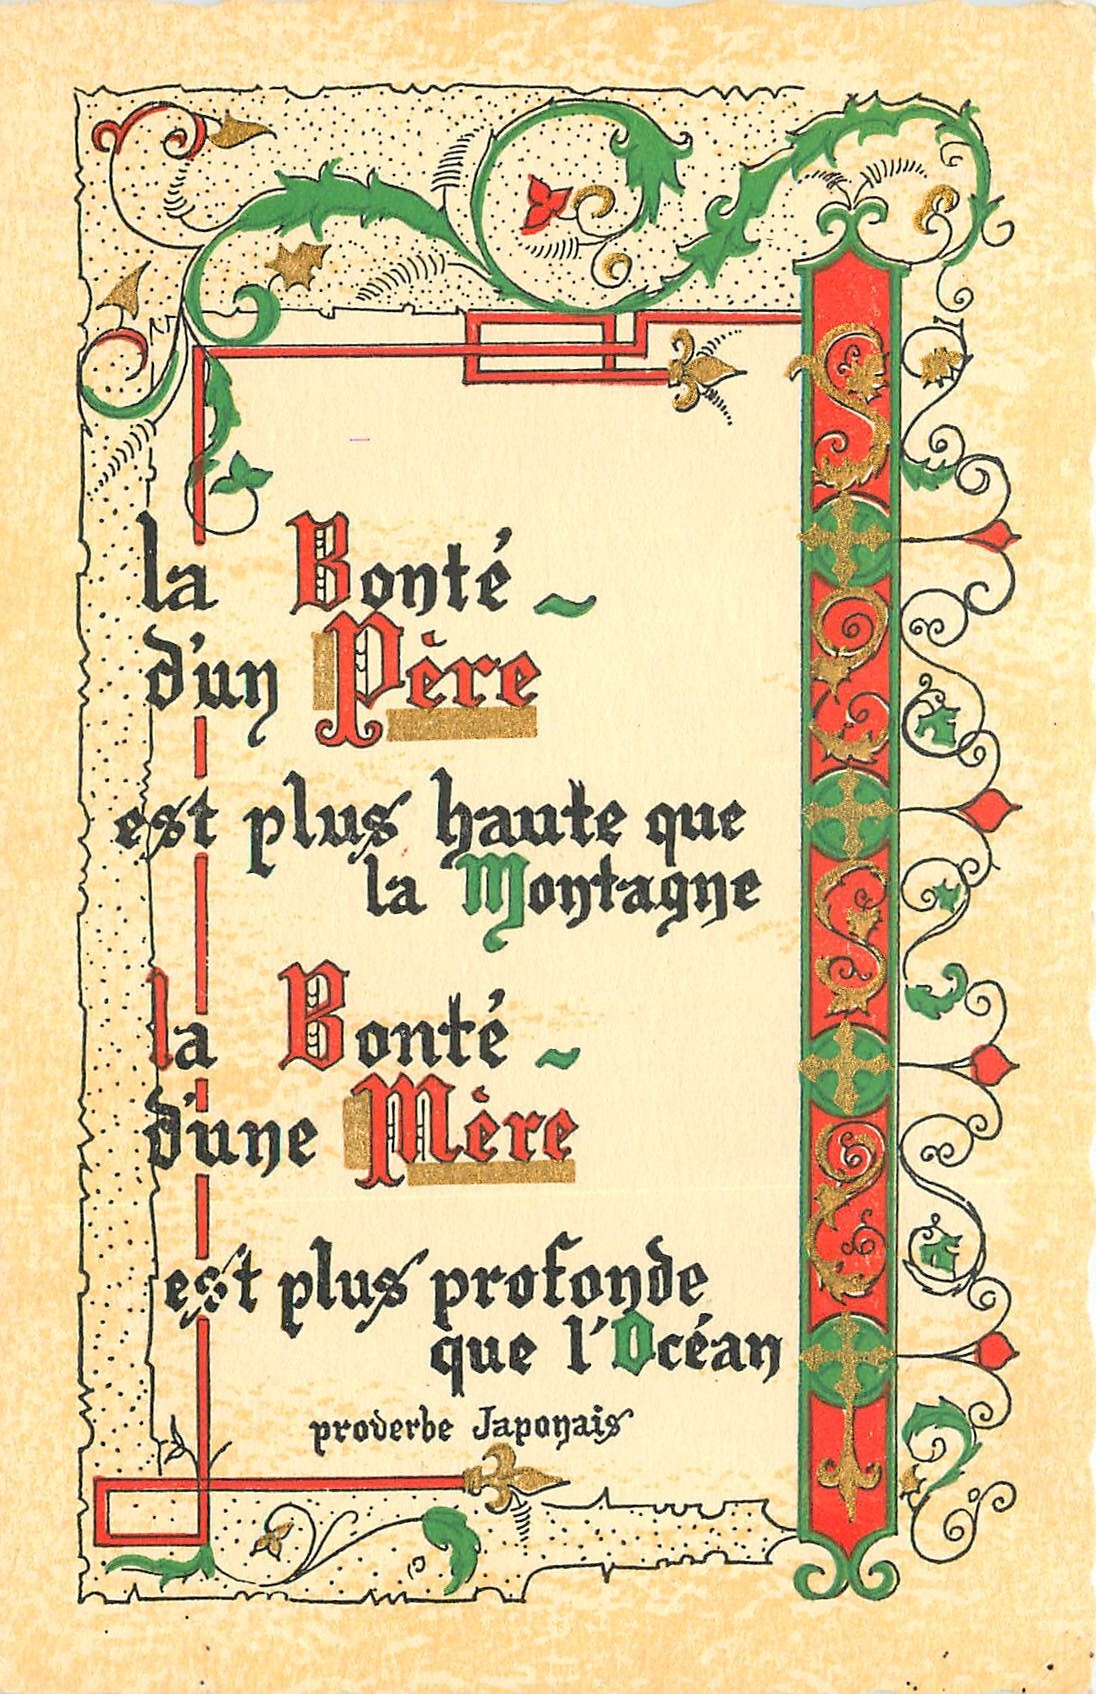 la Bonté ~
d'un Père
est plus haute que
la Montagne
la Bonté ~
d'une Mère
est plus profonde
que l'Océan
proverbe Japonais